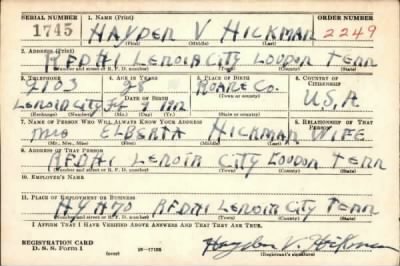 SERIAL NUMBER 1. NAME (Print) ORDER NUMBER
1745 HAYDEN V HICKMAN 2249
(First) (Middle) (Last)
2. ADDRESS (Print)
RFD#1 LENOIR CITY LOUDON TENN
(Number and street or R. F. D. number) (Town) (County) (State)
3. TELEPHONE 4. AGE IN YEARS 5. PLACE OF BIRTH 6. COUNTRY OF CITIZENSHIP
9103 28 ROANE CO.
DATE OF BIRTH (Town or county)
LENOIR CITY U.S.A
(Exchange) (Number) (Mo.) (Day) (Yr.) (State or country)
7. NAME OF PERSON WHO WILL ALWAYS KNOW YOUR ADDRESS 8. RELATIONSHIP OF THAT PERSON
MRS ELBERTA HICKMAN WIFE
(Mr., Mrs., Miss) (First) (Middle) (Last)
9. ADDRESS OF THAT PERSON
RFD#1 LENOIR CITY LOUDON TENN
(Number and street or R. F. D. number) (Town) (County) (State)
10. EMPLOYER'S NAME
11. PLACE OF EMPLOYMENT OR BUSINESS
RFD#1 LENOIR CITY TENN
(Number and street or R. F. D. number) (Town) (County) (State)
I AFFIRM THAT I HAVE VERIFIED ABOVE ANSWERS AND THAT THEY ARE TRUE.
REGISTRATION CARD
D. S. S. Form 1 (over) 16—17105 Hayden V. Hickman
(Registrant's signature)